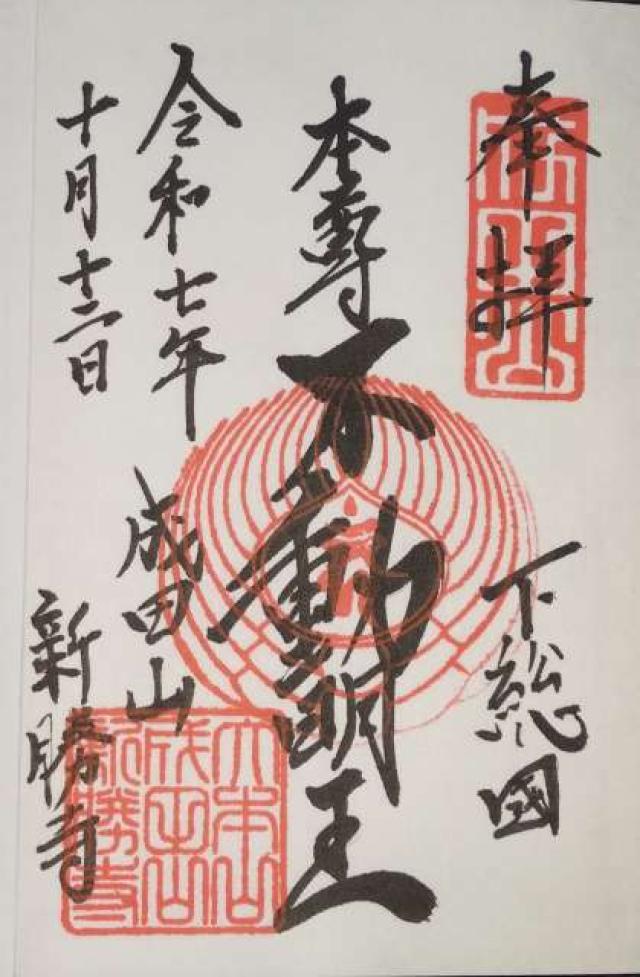 奉拝
下総國
本尊不動明王
令和七年
十月十二日
成田山
新勝寺
大本山成田山新勝寺